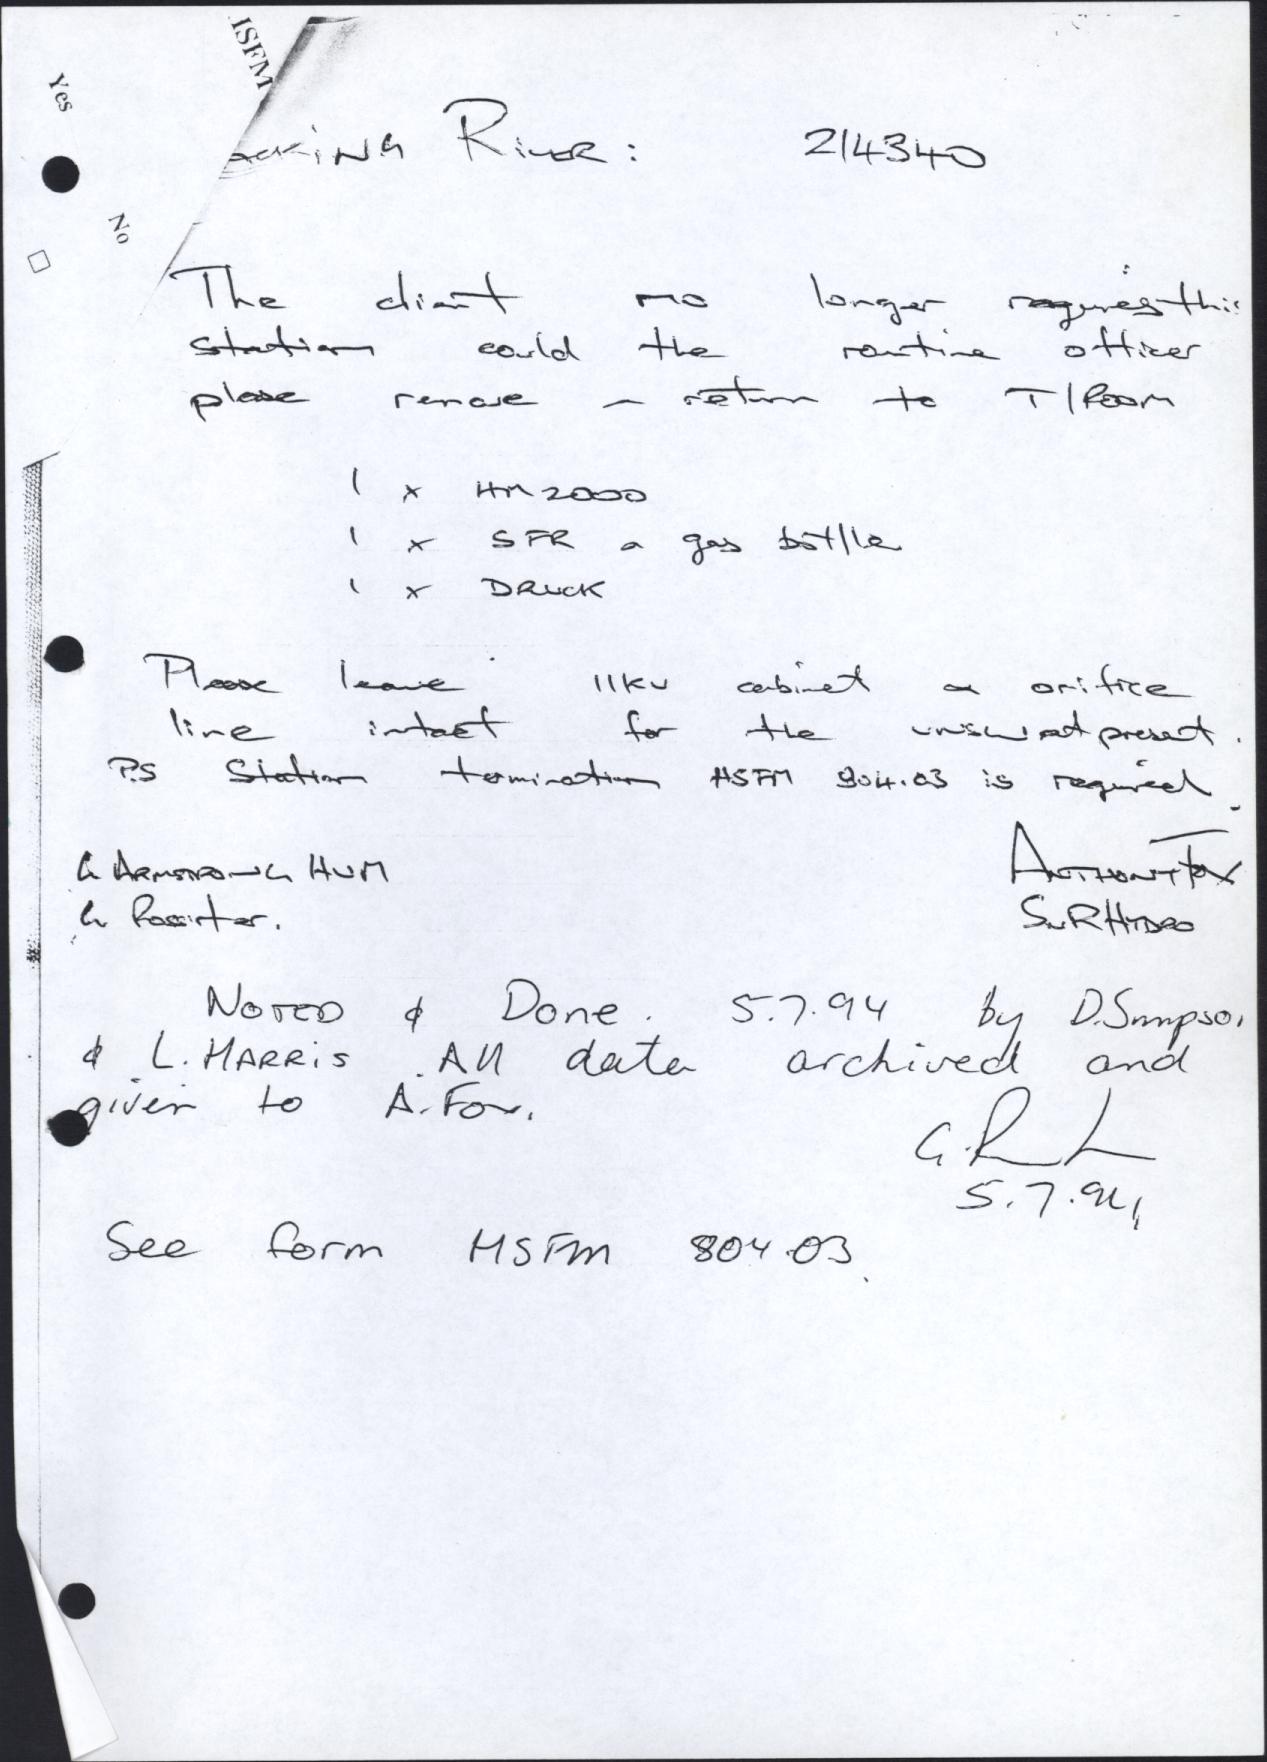 ISFM
Yes
No
acking River: 214340
The client no longer requires this
station could the routine officer
please remove & return to T/Room
1 x HM2000
1 x SFR & gas bottle
1 x DRUCK
Please leave 11KV cabinet & orifice
line intact for the unsw at present.
P.S Station termination HSFM 804.03 is required.
G ARMSTRONG HUM
G Rossiter.
ANTHONY FOX
SNR HYDRO
NOTED & Done. 5.7.94 by D.Simpson
& L. HARRIS. All data archived and
given to A. Fox.
5.7.94
See form HSFM 804.03